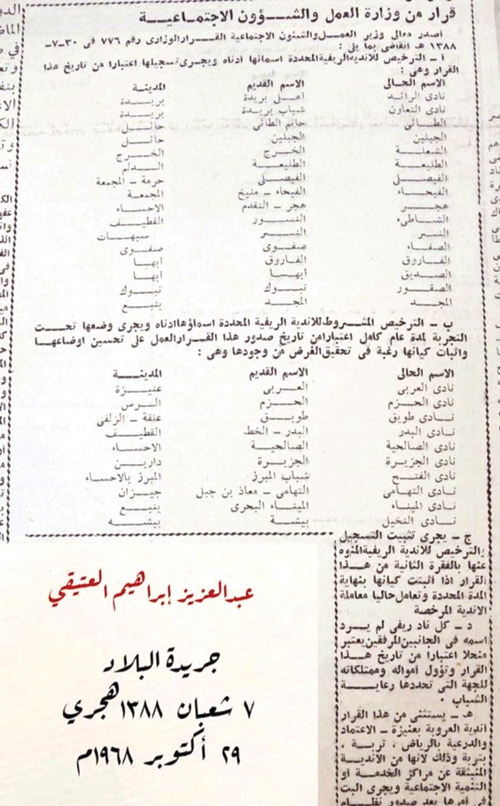 قرار من وزارة العمل والشؤون الاجتماعية
اصدر معالي وزير العمل والشئون الاجتماعية القرار الوزارى رقم ٧٧٦ فى ٣٠-٧-
١٣٨٨ هـ القاضى بما يلى :
ا - الترخيص للاندية الريفية المحددة اسمائها ادناه ويجرى تسجيلها اعتبارا من تاريخ هذا
القرار وهى :
الاسم الحالى الاسم القديم المدينة
نادى الرائد أهلى بريدة بريدة
نادى التعاون شباب بريدة بريدة
الطائى حاتم الطائى حائل
الجبلين الجبلين حائل
الشعلة الخرج الخرج
الطليعة الطليعة الدلم
الفيصلى الفيصلى حرمة - المجمعة
الفيحاء الفيحاء - منيخ المجمعة
هجر هجر - التقدم الاحساء
الشاطىء النسور القطيف
النسر النسر سيهات
الصفاء صفوى صفوى
الفاروق الفاروق ابها
الصديق ابها ابها
الصقور تبوك تبوك
المجد المجد ينبع
ب - الترخيص المشروط للاندية الريفية المحددة اسماؤها ادناه ويجرى وضعها تحت
التجربة لمدة عام كامل اعتبارا من تاريخ صدور هذا القرار العمل على تحسين اوضاعها
واثبات كيانها رغبة فى تحقيق الغرض من وجودها وهى :
الاسم الحالى الاسم القديم المدينة
نادى العربى العربى عنيزة
نادى الحزم الحزم الرس
نادى طويق طويق علقة - الزلفى
نادى البدر البدر - الخط القطيف
نادى الصالحية الصالحية الاحساء
نادى الجزيرة الجزيرة دارين
نادى الفتح شباب المبرز المبرز بالاحساء
نادى التهامى التهامى - معاذ بن جبل جيزان
نادى الميناء الميناء البحرى ينبع
نادى النخيل بيشة بيشه
ج - يجرى تثبيت التسجيل
الترخيص للاندية الريفية المنوه
عنها بالفقرة الثانية من هذا
القرار اذا أثبتت كيانها بنهاية
المدة المحددة وتعامل حاليا معاملة
الاندية المرخصة
د - كل ناد ريفى لم يرد
اسمه فى الجانبين المرفقين يعتبر
منحلا اعتبارا من تاريخ هذا
القرار وتؤول أمواله وممتلكاته
للجهة التى تحددها رعاية
الشباب .
هـ - يستثنى من هذا القرار
اندية العروبة بعنيزة - الاعتماد
والدرعية بالرياض ، تربة ،
بتربة وذلك لانها من الاندية
المنبثقة عن مراكز الخدمة او
التنمية الاجتماعية ويجرى البت
فى امرها بعد صدور
عبدالعزيز إبراهيم العتيقي
جريدة البلاد
٧ شعبان ١٣٨٨ هجري
٢٩ أكتوبر ١٩٦٨م